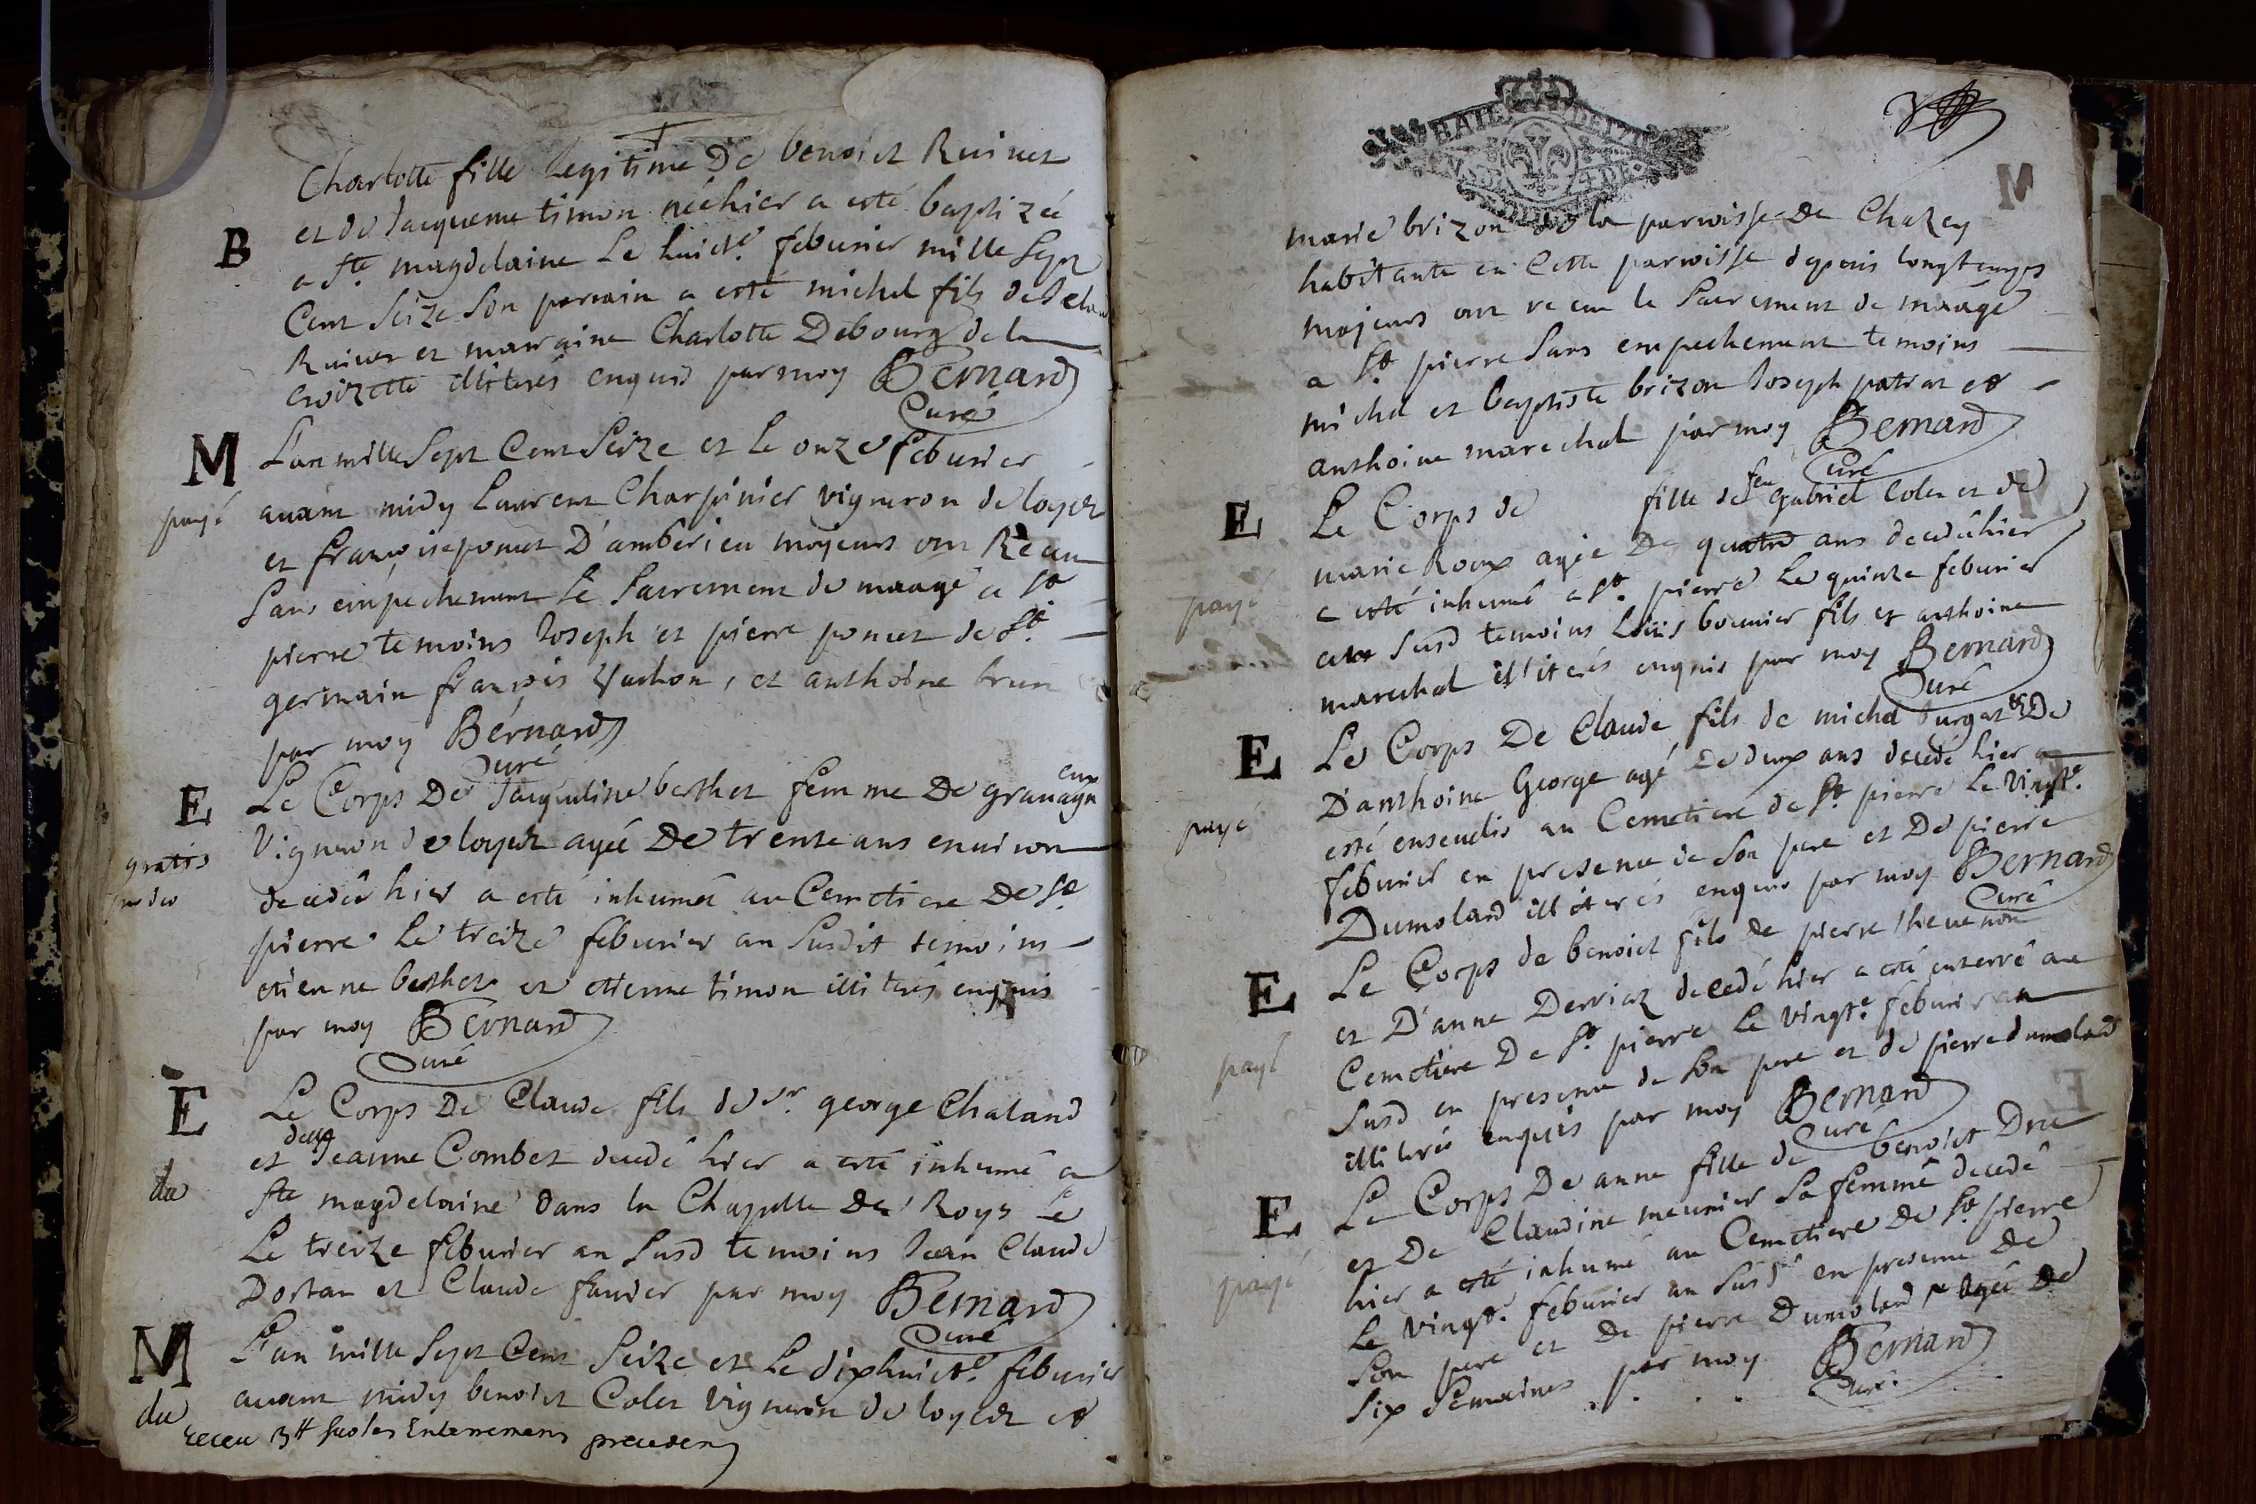 Charlotte fille legitime De benoict Ruinet
et de Jacqueme timon néehier a esté baptizée
B
a Ste magdelaine Le huicte. feburier mille Sept
Cent Seize Son parrain a esté michel fils de
Ruinet et marraine Charlotte Debourg de la
croizette illiterés enquis par moy Bernard
Curé
M
L'an mille Sept Cent Seize et Le onze feburier
payé
auant midy Laurent Charpinier vigneron de loyet
et françoise poncet D'amberieu majeurs ont Receu
Sans empechement Le Sacrement de maage a St
pierre temoins Joseph et pierre poncet de St.
germain françois Vachon, et anthoine brun
par moy Bernard
Curé
E
Le Corps De Jacqueline berthet femme De
Vigneron de loyet agée De trente ans enuiron
gratis
pro deo
decedée hier a esté inhumée au Cemetiere De St
pierre Le treize feburier an Susdit temoins
etienne berthet et etienne timon illiterés enquis
par moy Bernard
Curé
E
Le Corps De Claude fils de sr. george Chaland
et delle Jeanne Combet decedé hier a esté inhumé a
du
Ste magdelaine dans la Chapelle Des Roys Le
Le treize feburier an Susd temoins Jean Claude
Dortan et Claude fauier par moy Bernard
Curé
M
L'an mille Sept Cent Seize et Le dixhuicte. feburier
du
auant midy benoict Colet vigneron de loyet et
receu 3tt pr les Enterremens precedens

marie brizon de la parroisse De Chazey
habitante en Cette parroisse depuis longtemps
majeurs ont receu le Sacrement de maage
a St. pierre Sans empechement temoins
michel et baptiste brizon Joseph patrat et
anthoine marechal par moy Bernard
Curé
E
Le Corps de fille de feu gabriel Colet et de
marie Roux agée De quatre ans decedéehier
payé
a esté inhumé a St. pierre Le quinze feburier
an Susd temoins Louis bounier fils et anthoine
marechal illiterés enquis par moy Bernard
Curé
E
Le Corps De Claude fils de michel Jurgat et De
D'anthoine George agé De deux ans decedé hier a
payé
esté enseueli au Cemetiere de St. pierre Le vingte.
feburier en presence de Son pere et De pierre
Dumolard illiterés enquis par moy Bernard
Curé
E
Le Corps de benoict fils de pierre theuenon
et D'anne Derriaz decedé hier a esté enterré au
payé
Cemetiere De St. pierre Le vingte. feburier an
Susd en presence de Son pere et de pierre dumolard
illiterés enquis par moy Bernard
Curé
E
Le Corps De anne fille de benoict Dru
et De Claudine meunier Sa femme decedé
hier a esté inhumé au Cemetiere De St pierre
payé
Le vingte. feburier an Susd en presence De
Son pere et De pierre Dumolard agée De
Six Semaines par moy Bernard
Curé